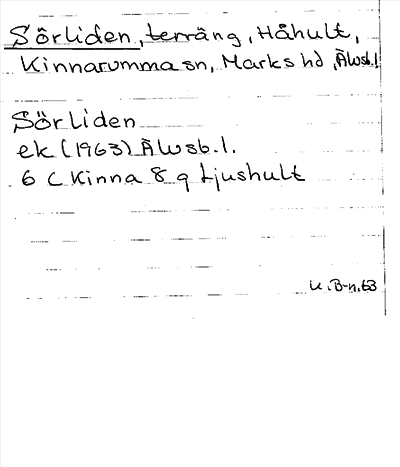 Sörliden, terräng, Håhult,
Kinnarumma sn, Marks hd, Älvsb.l
Sörliden
ek (1963) Älvsb.l.
6 C Kinna 8 g Ljushult
U.B-n.63